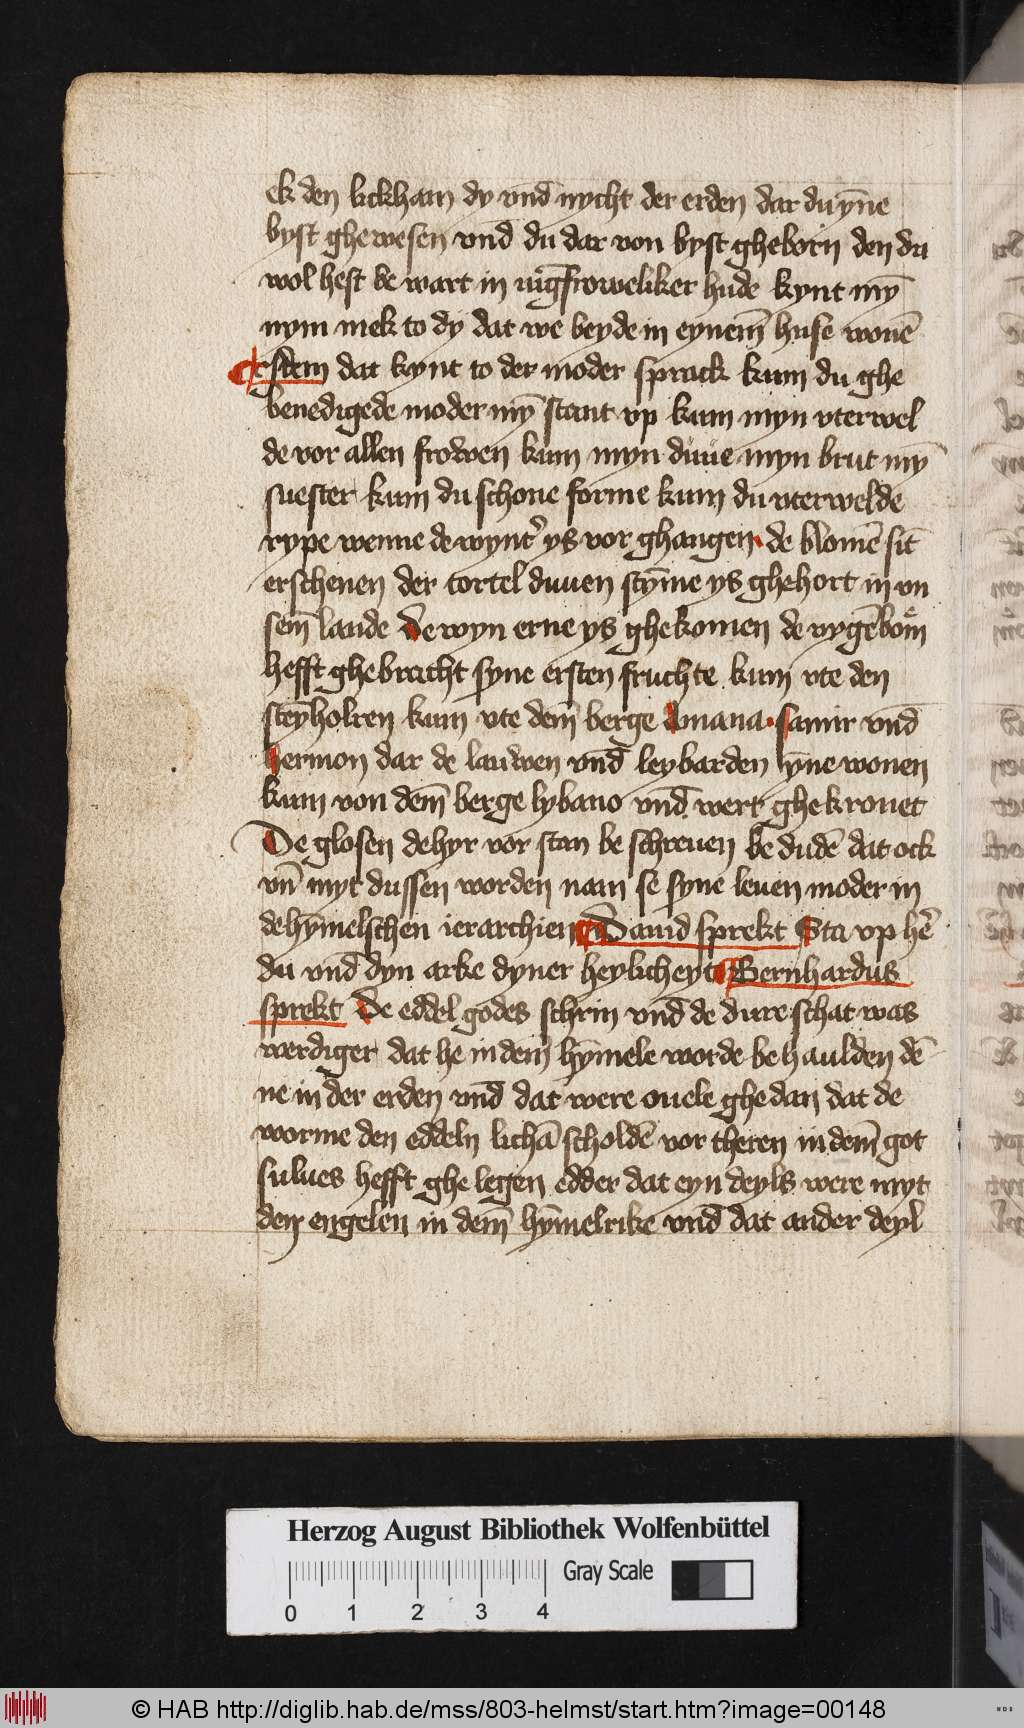 ek den lickham dy vnd nycht der erden dar du yn̄e
byst ghewesen vnd du dar von byst gheborn den du
wol hest be wart in iūgfroweliker hude kynt mȳ
nym mek to dy dat we beyde in eynem̄ huse wonē
estem dat kynt to der moder sprack kum du ghe
benedigede moder mȳ stant vp kum myn vterwel
de vor allen frowen kum myn duue myn brut mȳ
suester kum du schone forme kum du vterwelde
rype wenne de wynt' ys vor ghangen · de blomē sīt
erschenen der tortel duuen stȳme ys ghehort in vn
sem̄ lande De wyn erne ys ghekomen de vygēbom̄
hefft ghebracht syne ersten fruchte kum vte den
steynholren kum vte dem̄ berge Amana · samir vnd
hermon dar de lauwen vnd leybarden ȳne wonen
kum von dem̄ berge lybano vnd wert ghekronet
De glosen de hyr vor stan be schreuen be dudē dat ock
vn̄ myt dussen worden nam se syne leuen moder in
de hȳmelschen ierarchien Dauid sprekt Sta vp hē'
du vnd dyn arke dyner heylicheyt Bernhardus
sprekt De eddel godes schrin vnd de dure schat was
werdiger dat he in dem̄ hȳmele worde be haulden dē
ne in der erden vnd dat were ouele ghe dan dat de
worme den eddeln lichā scholdē vor theren in dem̄ got
sulues hefft ghe legen edder dat eyn deyls were myt
den engelen in dem̄ hȳmelrike vnd dat ander deyl
Herzog August Bibliothek Wolfenbüttel
Gray Scale
0 1 2 3 4
© HAB http://diglib.hab.de/mss/803-helmst/start.htm?image=00148